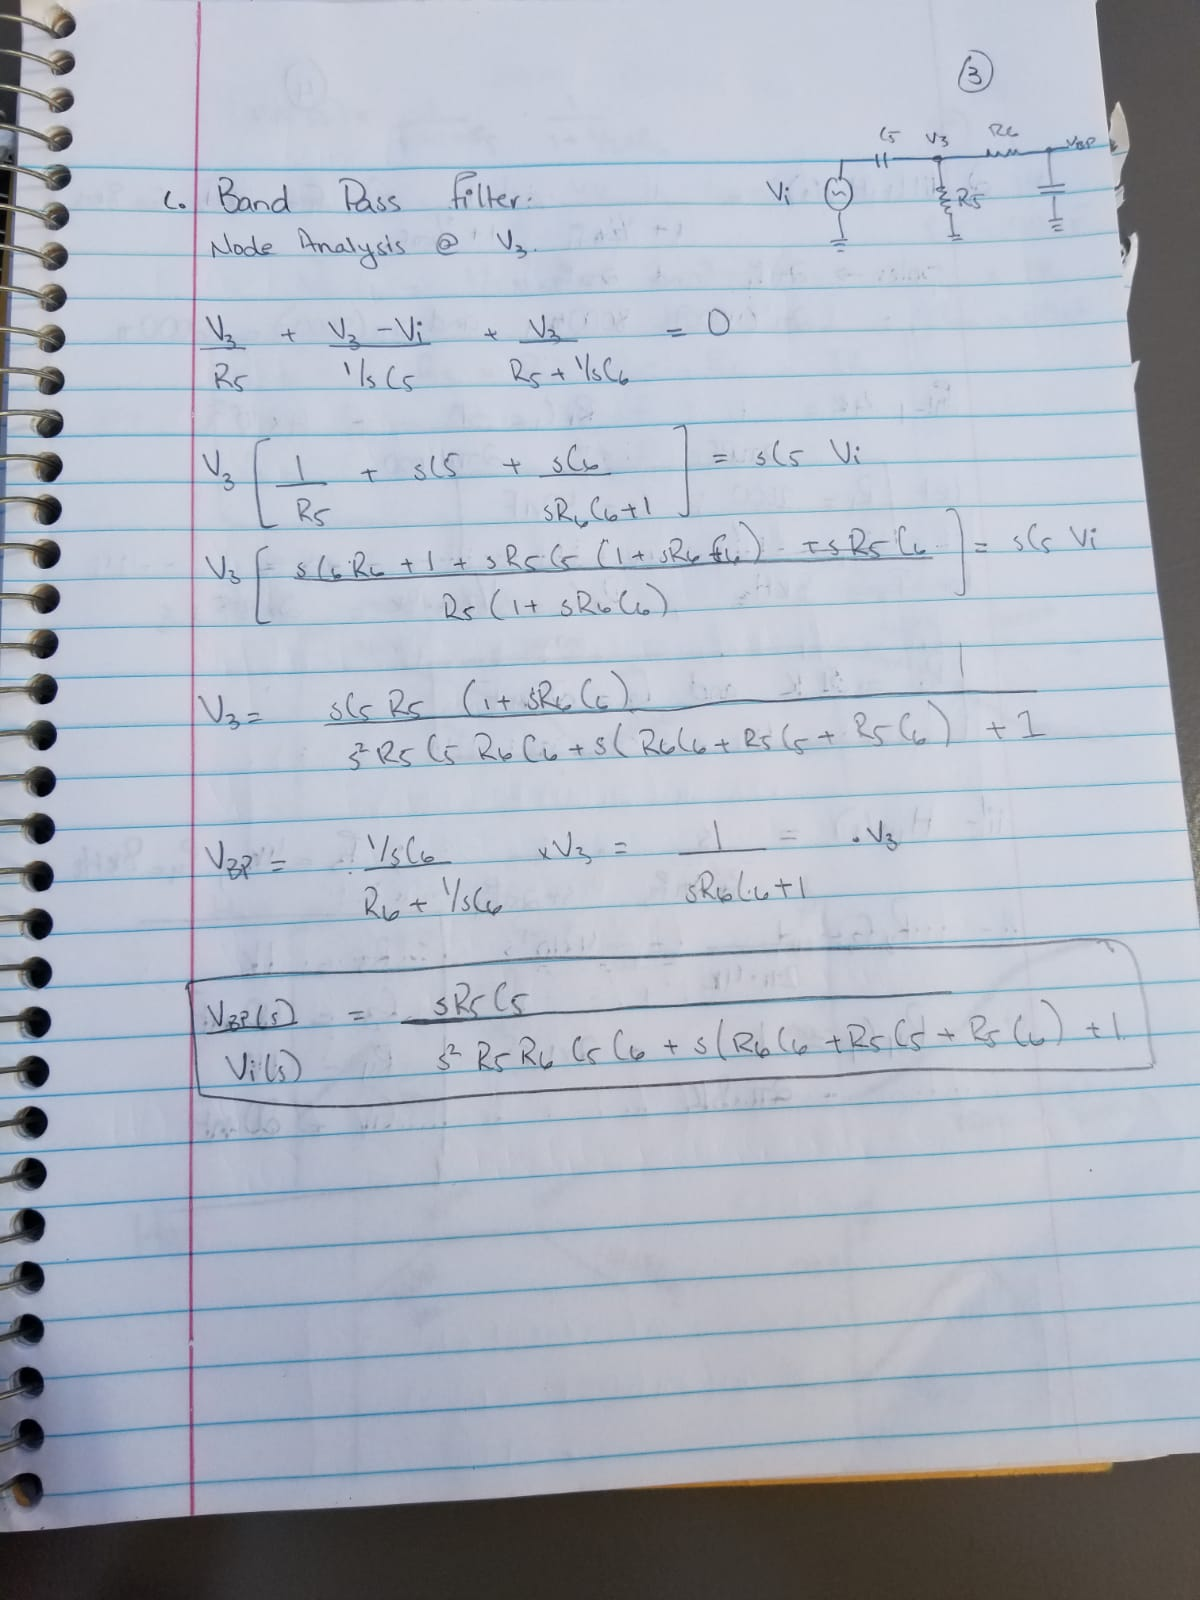 3
C5 V3 R6 VBP
Vi R5
c. Band Pass Filter:
Node Analysis @ V3.
V3/R5 + (V3 - Vi)/(1/sC5) + V3/(R5 + 1/sC6) = 0
V3 [ 1/R5 + sC5 + sC6/(sR6C6+1) ] = sC5 Vi
V3 [ (sC6R6 + 1 + sR5C5 (1 + sR6C6) + sR5C6)/(R5 (1 + sR6C6)) ] = sC5 Vi
V3 = sC5 R5 (1 + sR6C6)/(s² R5 C5 R6 C6 + s(R6C6 + R5C5 + R5C6) + 1)
VBP = (1/sC6)/(R6 + 1/sC6) x V3 = 1/(sR6C6+1) = . V3
VBP(s)/Vi(s) = sR5C5/(s² R5 R6 C5 C6 + s(R6C6 + R5C5 + R5C6) + 1)